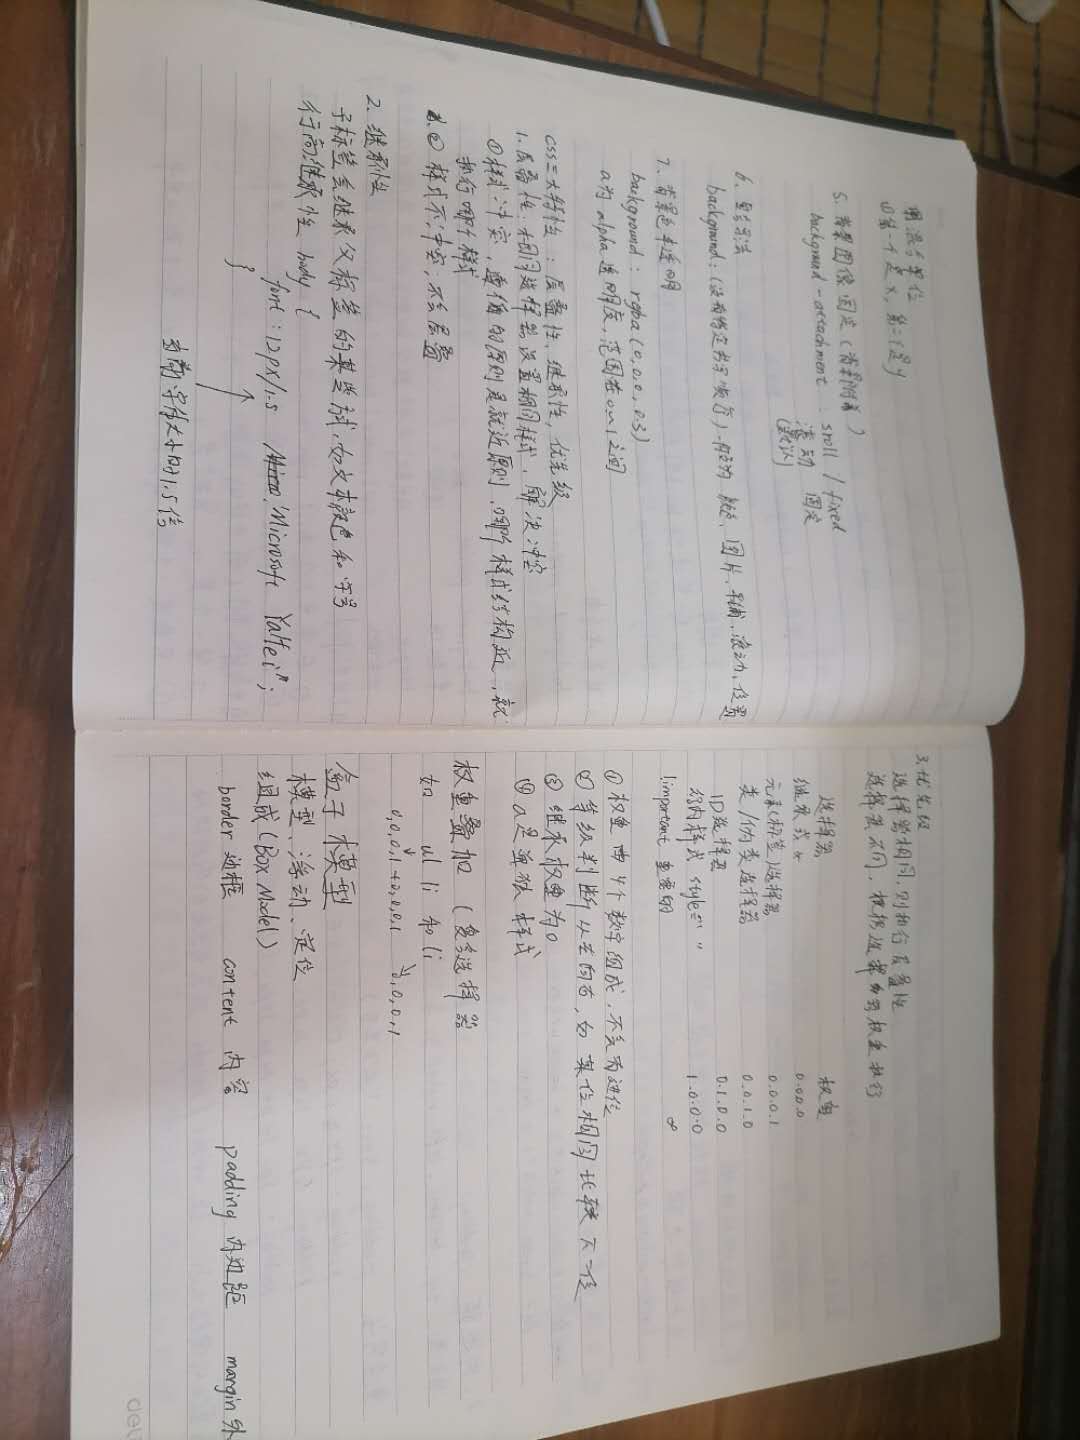 用混合单位
①第一个是x,第二个是y
5.背景图像固定(背景附着)
background-attachment:sroll / fixed
滚动 固定
(默认)
6.复合写法
background:(没有特定书写顺序)一般为 颜色、图片、平铺、滚动、位置
7.背景色半透明
background:rgba(0,0,0,0.3)
a为alpha透明度,范围在0~1之间
CSS三大特性:层叠性、继承性、优先级
1.层叠性:相同选择器设置相同样式,解决冲突
①样式冲突,遵循的原则是就近原则,哪个样式离结构近,就
执行哪个样式
②样式不冲突,不会层叠
2.继承性
子标签会继承父标签的某些样式,如文本颜色和字号
行高继承性 body {
font:12px/1.5 "Microsoft YaHei";
}
当前字体大小的1.5倍
3.优先级
选择器相同,则执行层叠性
选择器不同,根据选择器的权重执行
选择器 权重
继承或* 0.0.0.0
元素(标签)选择器 0.0.0.1
类/伪类选择器 0.0.1.0
ID选择器 0.1.0.0
行内样式 style="" 1.0.0.0
!important 重要的 ∞
①权重由4个数字组成,不会有进位
②等级判断从左向右,如某位相同比较下一位
③继承权重为0
④a是单独样式
权重叠加(复合选择器
如 ul li 和 li
0,0,0,1+0,0,0,1 0,0,0,1
盒子模型
模型、浮动、定位
组成(Box Model)
border边框 content 内容 padding 内边距 margin外